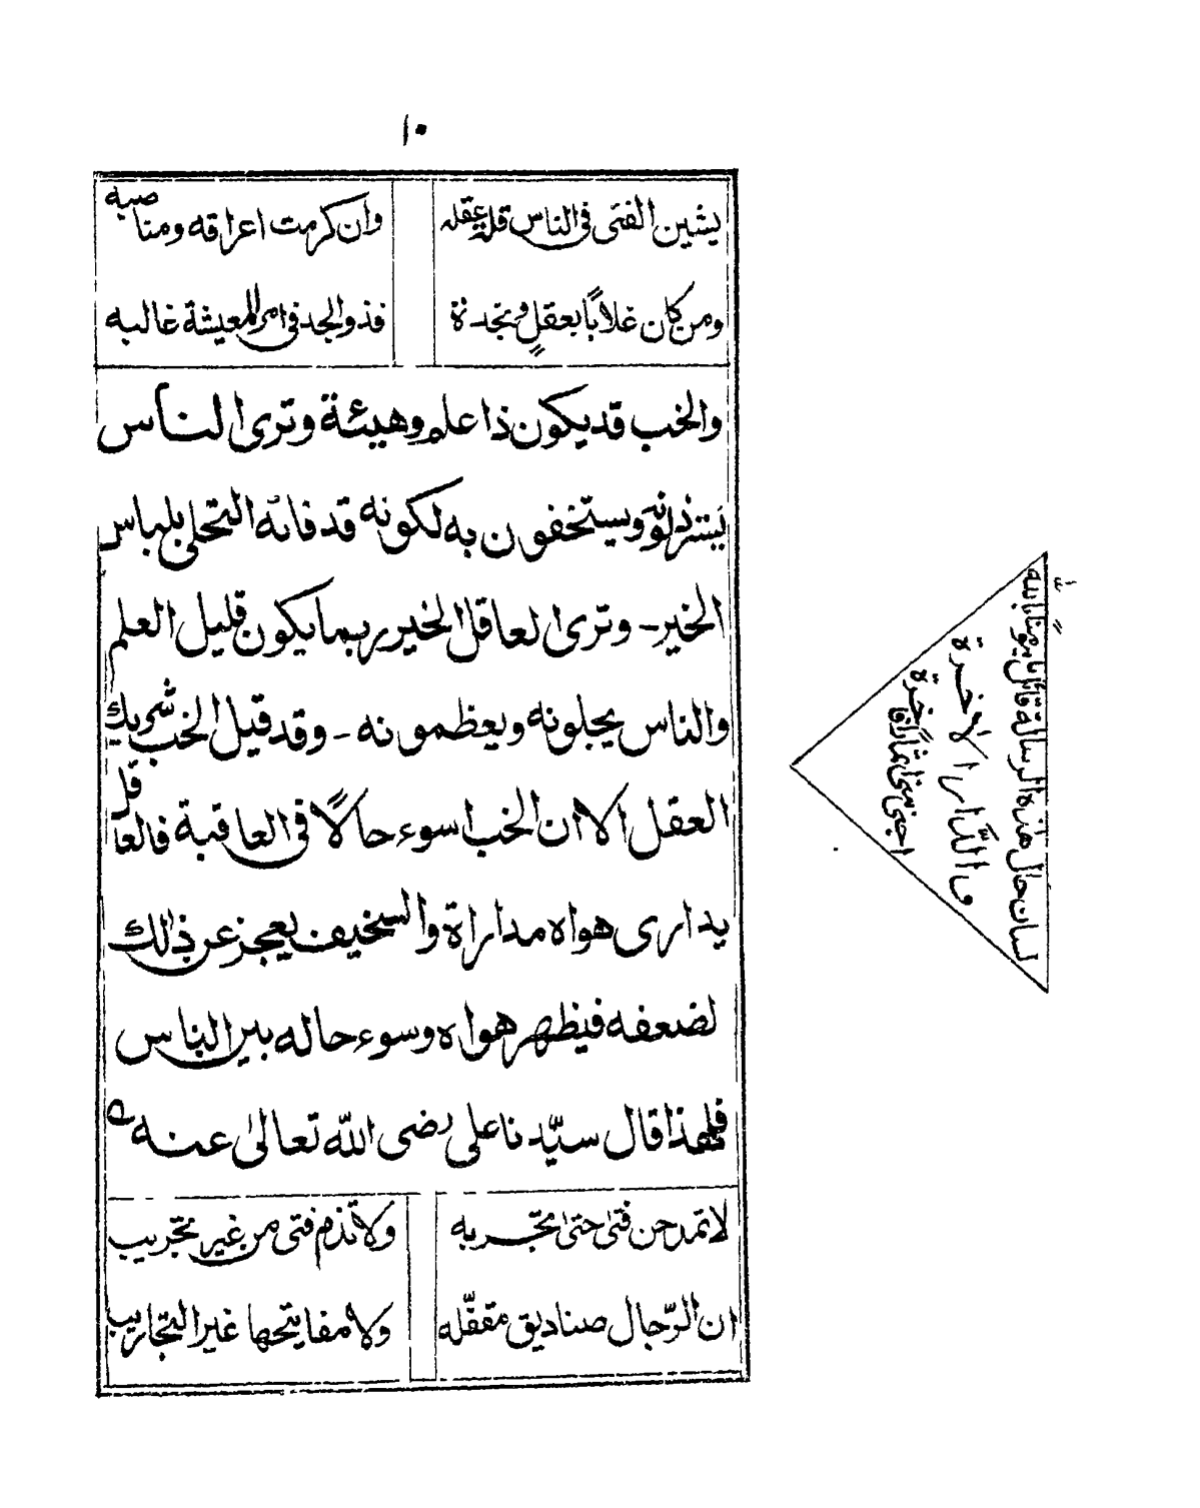 ١٠
يشين الفتى فى الناس قلة عقله وان كرمت اعراقه ومناصبه
ومن كان غلابًا بعقلٍ ونجدة فذو الجد فى امر المعيشة غالبه
والخب قد يكون ذا علم وهيئة وترى الناس
يَسترذلونَه ويستخفون به لكونه قد فاته التحلى بلباس
الخير - وترى العاقل الخير ربما يكون قليل العلم
والناس يجلونه ويعظمونه - وقد قيل الخب شريك
العقل الا ان الخب اسوء حالًا فى العاقبة فالعاقل
يدارى هواه مداراة والسخيف يعجز عن ذٰلك
لضعفه فيظهر هواه وسوء حاله بين الناس
فلهذا قال سيّدنا على رضى اللّه تعالىٰ عنه
لا تمدحن فتىٰ حتىٰ تجربه ولا تذم فتى من غير تجريب
ان الرّجال صناديق مقفّله ولا مفاتيحها غير التجاريب
لسان حال هذه الرسالة قائل يا مؤمنًا بالله
والدَّار الاٰخرة
اجنى منى ثمارًا فاخرة